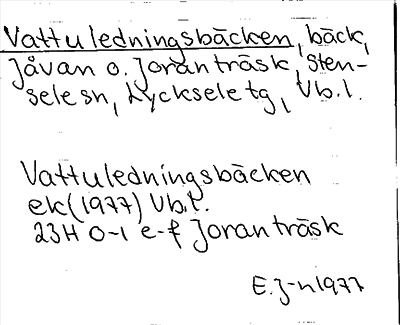 Vattuledningsbäcken, bäck,
Jåvan o. Joranträsk, Sten-
sele sn, Lycksele tg, Vb.l.
Vattuledningsbäcken
ek(1977) Vb.l.
23H 0-1 e-f Joranträsk
E.J-n 1977